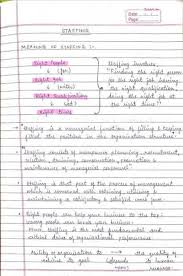 Date
Page
STAFFING
MEANING OF STAFFING :-
Right People
Staffing involves,
6 (for)
"Finding the right person
Right job
for the right job having
6 (with)
the right qualification,
Right Qualification
doing the right job at
6 (at)
the right time."
Right time
"Staffing is a managerial function of filling & keeping
filled the positions in the organisation structure
Staffing consists of manpower planning, recruitment,
selection, training, compensation, promotion &
maintenance of managerial personnel"
Staffing is that part of the process of management
which is concerned with obtaining, utilising &
maintaining a satisfactory & satisfied work force
Right people can help your business to the top;
wrong people can break your business.
Thus staffing is the most fundamental and
critical drive of organisational performance
Ability of organisations to → the quality of
achieve its goal depends its human
upon resources